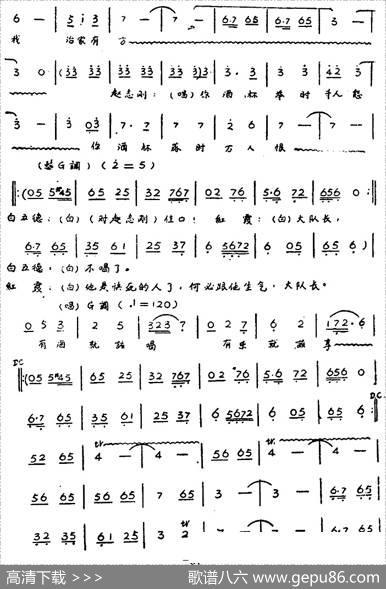 6 — | 5 i 3 | 7 — | 7 | 6·7 65 | 6·7 65 | 3 — |
我 治家有方
3 0 | (33 33 | 33 33 | 33 3)3 | 3 · 3 | 3 3 | 42 3 |
赵志刚:(唱)你酒杯举时千人怨
3 — | 3 03 | 7 · 7 | 7 7 | 2 6 | 7 — | 7 — |
你酒杯落时万人恨
(2=5)
‖:(05 5#45 | 65 25 | 32 767 | 02 76 | 5·6 72 | 656 0 |
白五德:(白)(对赵志刚)住口! 红霞:(白)大队长,
6·7 65 | 35 61 | 25 37 | 6 5672 | 6 05 | 65 6 )
白五德:(白)不喝了。
红霞:(白)他是快死的人了,何必跟他生气,大队长。
(唱)G调(♩=120)
0 5 3 | 2 5 | 323 7 | 0 2 7 | 6 2 | 172·6 |
有酒就该喝 有乐就该享
D.C.
‖:(05 5#45 | 65 25 | 32 767 | 02 76 | 5·6 72 | 656 0 |
D.C.
6·7 65 | 35 61 | 25 37 | 6 5672 | 6 05 | 65 6 :‖
52 65 | 4 — | 4 — | 56 65 | 4 — | 4 — |
56 65 | 56 65 | 7 65 | 3 — | 3 — | 6·7 65 |
32 35 | 61 25 | 3 2
高清下载 >>>
歌谱八六 www.gepu86.com